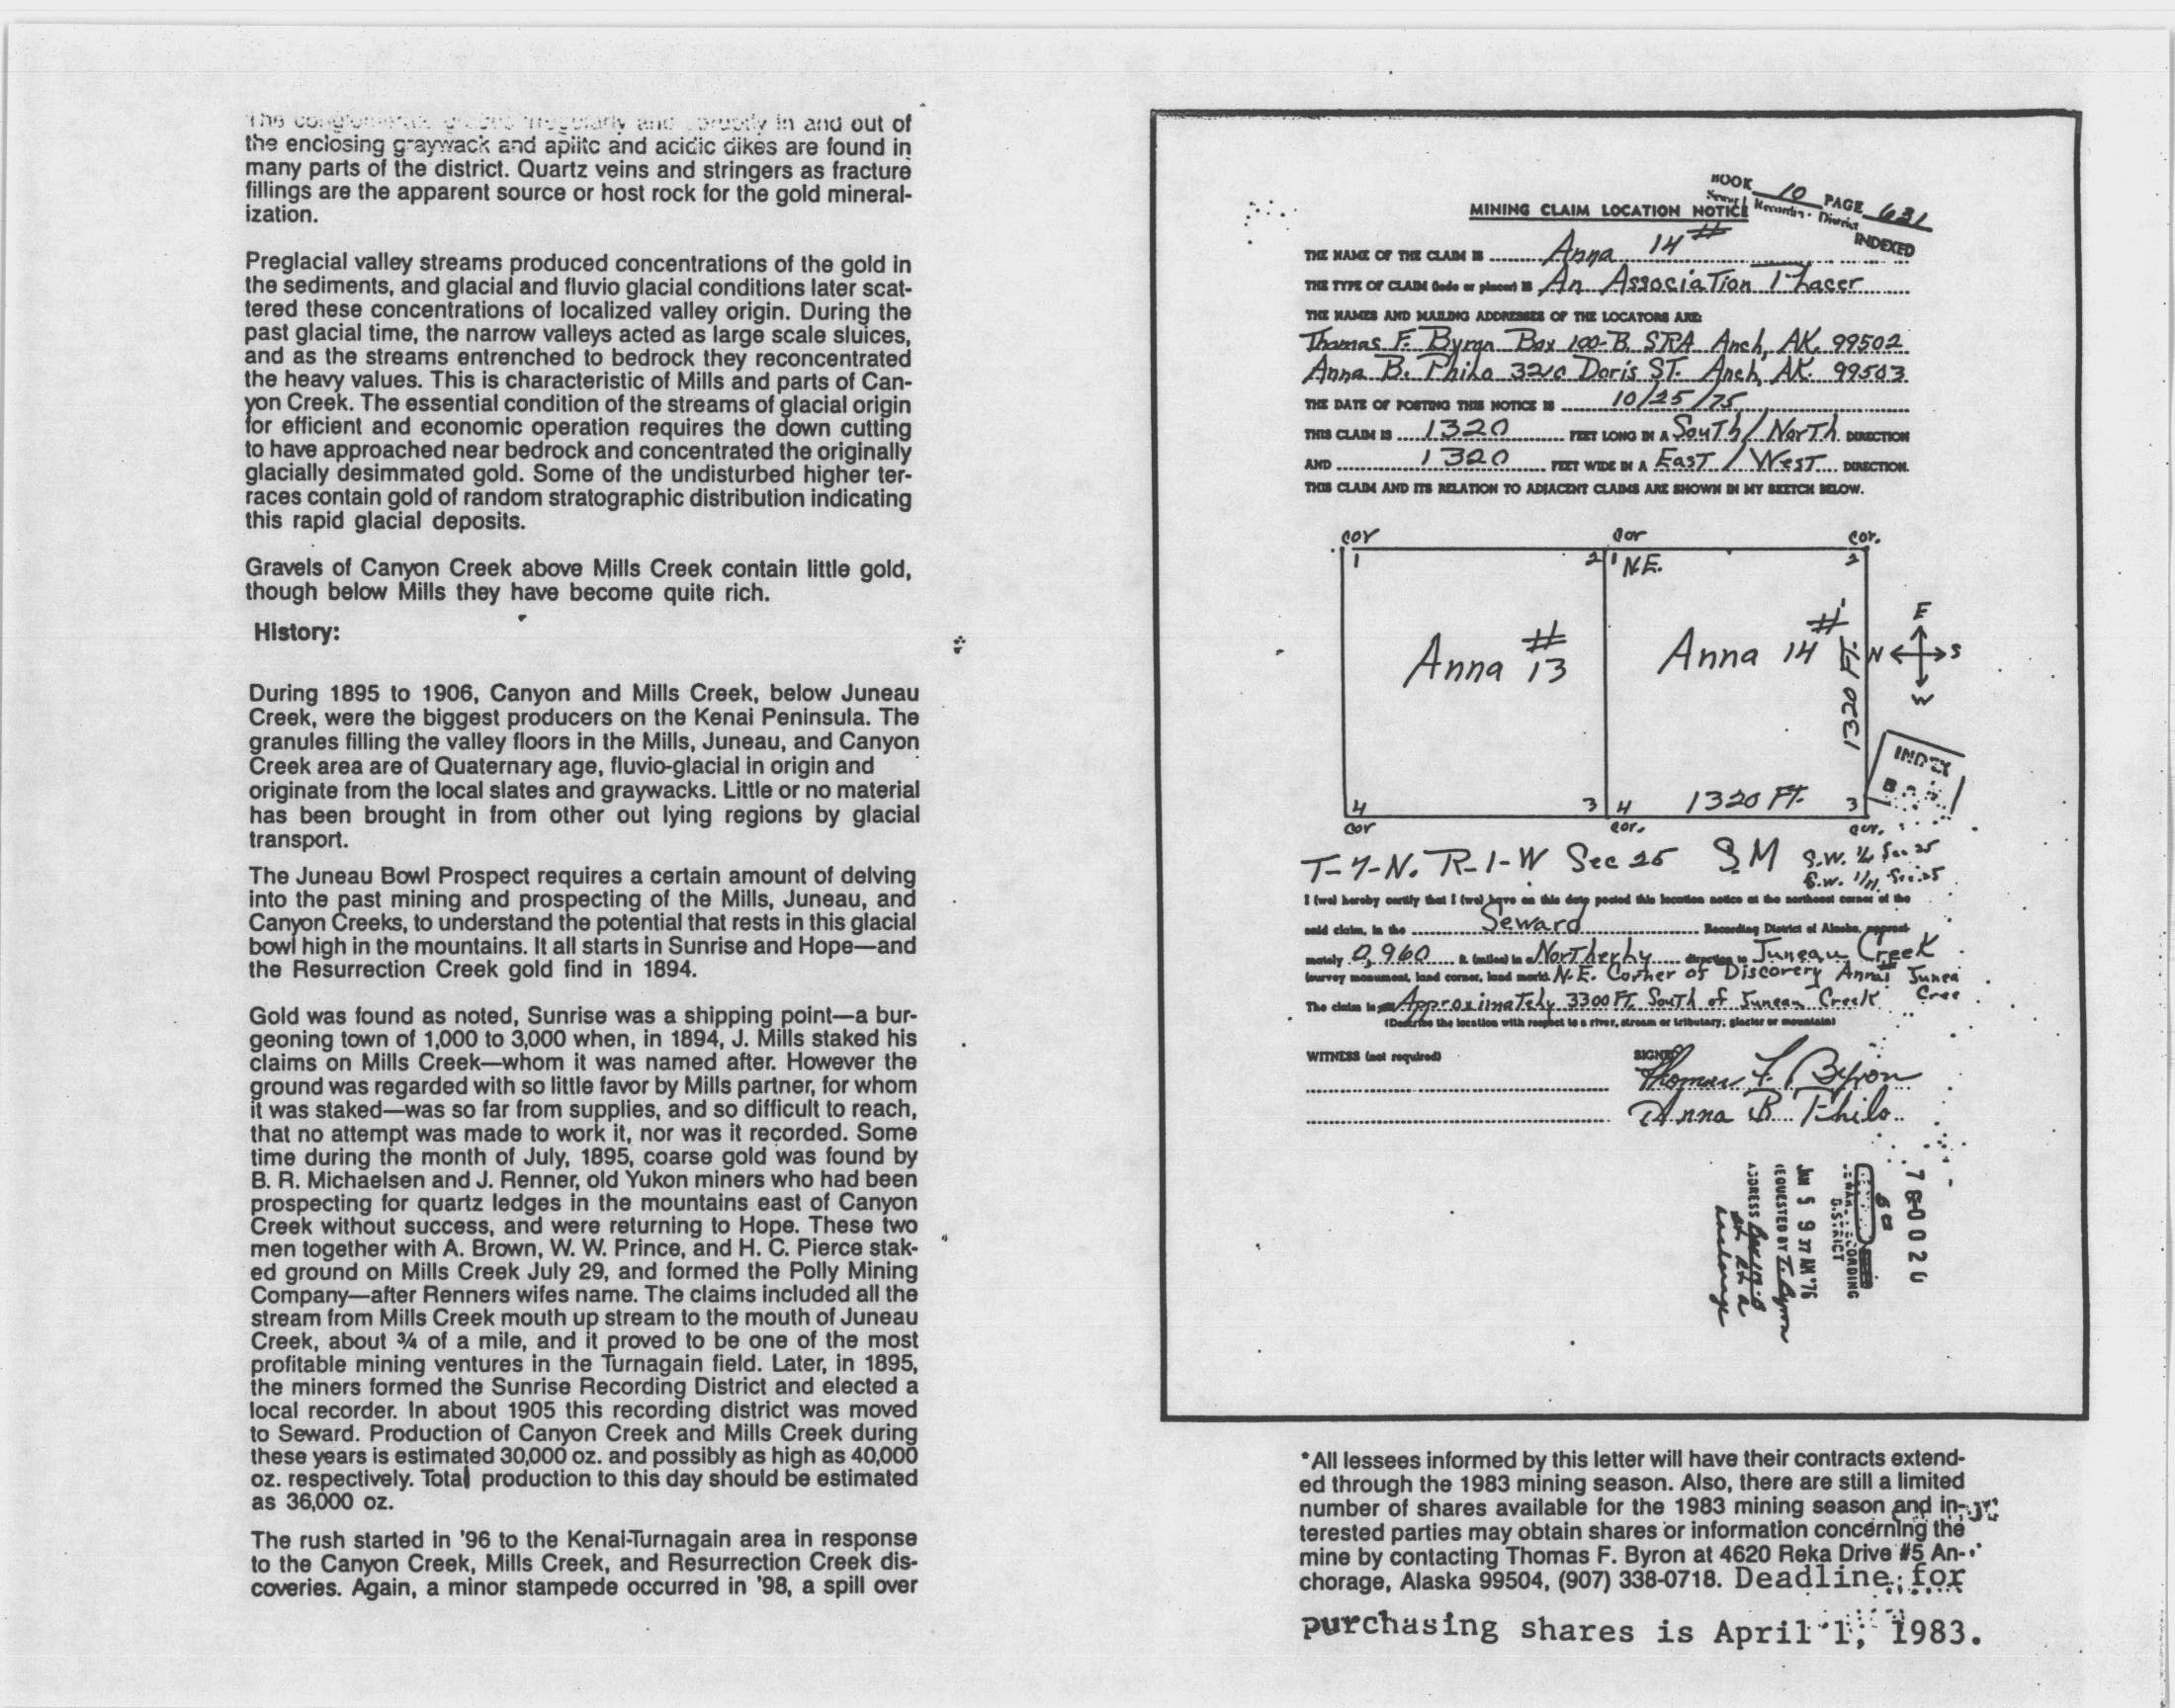 The irregularly and in and out of
the enclosing graywack and aplitc and acidic dikes are found in
many parts of the district. Quartz veins and stringers as fracture
fillings are the apparent source or host rock for the gold mineral-
ization.
Preglacial valley streams produced concentrations of the gold in
the sediments, and glacial and fluvio glacial conditions later scat-
tered these concentrations of localized valley origin. During the
past glacial time, the narrow valleys acted as large scale sluices,
and as the streams entrenched to bedrock they reconcentrated
the heavy values. This is characteristic of Mills and parts of Can-
yon Creek. The essential condition of the streams of glacial origin
for efficient and economic operation requires the down cutting
to have approached near bedrock and concentrated the originally
glacially desimmated gold. Some of the undisturbed higher ter-
races contain gold of random stratographic distribution indicating
this rapid glacial deposits.
Gravels of Canyon Creek above Mills Creek contain little gold,
though below Mills they have become quite rich.
History:
During 1895 to 1906, Canyon and Mills Creek, below Juneau
Creek, were the biggest producers on the Kenai Peninsula. The
granules filling the valley floors in the Mills, Juneau, and Canyon
Creek area are of Quaternary age, fluvio-glacial in origin and
originate from the local slates and graywacks. Little or no material
has been brought in from other out lying regions by glacial
transport.
The Juneau Bowl Prospect requires a certain amount of delving
into the past mining and prospecting of the Mills, Juneau, and
Canyon Creeks, to understand the potential that rests in this glacial
bowl high in the mountains. It all starts in Sunrise and Hope—and
the Resurrection Creek gold find in 1894.
Gold was found as noted, Sunrise was a shipping point—a bur-
geoning town of 1,000 to 3,000 when, in 1894, J. Mills staked his
claims on Mills Creek—whom it was named after. However the
ground was regarded with so little favor by Mills partner, for whom
it was staked—was so far from supplies, and so difficult to reach,
that no attempt was made to work it, nor was it recorded. Some
time during the month of July, 1895, coarse gold was found by
B. R. Michaelsen and J. Renner, old Yukon miners who had been
prospecting for quartz ledges in the mountains east of Canyon
Creek without success, and were returning to Hope. These two
men together with A. Brown, W. W. Prince, and H. C. Pierce stak-
ed ground on Mills Creek July 29, and formed the Polly Mining
Company—after Renners wifes name. The claims included all the
stream from Mills Creek mouth up stream to the mouth of Juneau
Creek, about ¾ of a mile, and it proved to be one of the most
profitable mining ventures in the Turnagain field. Later, in 1895,
the miners formed the Sunrise Recording District and elected a
local recorder. In about 1905 this recording district was moved
to Seward. Production of Canyon Creek and Mills Creek during
these years is estimated 30,000 oz. and possibly as high as 40,000
oz. respectively. Total production to this day should be estimated
as 36,000 oz.
The rush started in '96 to the Kenai-Turnagain area in response
to the Canyon Creek, Mills Creek, and Resurrection Creek dis-
coveries. Again, a minor stampede occurred in '98, a spill over
BOOK 10 PAGE 631
Recorder District
INDEXED
MINING CLAIM LOCATION NOTICE
THE NAME OF THE CLAIM IS Anna 14#
THE TYPE OF CLAIM (lode or placer) IS An Association Placer
THE NAMES AND MAILING ADDRESSES OF THE LOCATORS ARE:
Thomas F. Byron Box 100-B SRA Anch, AK. 99502
Anna B. Philo 3210 Doris ST. Anch, AK. 99503
THE DATE OF POSTING THIS NOTICE IS 10/25/75
THIS CLAIM IS 1320 FEET LONG IN A South/North DIRECTION
AND 1320 FEET WIDE IN A East/West DIRECTION.
THIS CLAIM AND ITS RELATION TO ADJACENT CLAIMS ARE SHOWN IN MY SKETCH BELOW.
cor cor cor.
1 2 1 N.E. 2
Anna #13 Anna 14#
1320 FT.
E
N S
W
INDEX
4 3 4 1320 FT. 3
cor cor. cor.
T-7-N. R-1-W Sec 25 SM S.W. ¼ Sec 25
S.W. 1/4 Sec. 25
I (we) hereby certify that I (we) have on this date posted this location notice at the northeast corner of the
said claim, in the Seward Recording District of Alaska, approxi-
mately 0,960 ft. (miles) in a Northerly direction to Juneau Creek
(survey monument, land corner, land mark). N.E. Corner of Discovery Anna Junea
The claim is Approximately 3300 FT. South of Juneau Creek Cree
(Describe the location with respect to a river, stream or tributary, glacier or mountain)
WITNESS (not required)
SIGNED
Thomas F. Byron
Anna B. Philo
76-0020
RECORDING
DISTRICT
JAN 5 9 37 AM '76
REQUESTED BY T. Byron
ADDRESS Box 100-B
Anchorage
*All lessees informed by this letter will have their contracts extend-
ed through the 1983 mining season. Also, there are still a limited
number of shares available for the 1983 mining season and in-
terested parties may obtain shares or information concerning the
mine by contacting Thomas F. Byron at 4620 Reka Drive #5 An-
chorage, Alaska 99504, (907) 338-0718. Deadline for
purchasing shares is April 1, 1983.